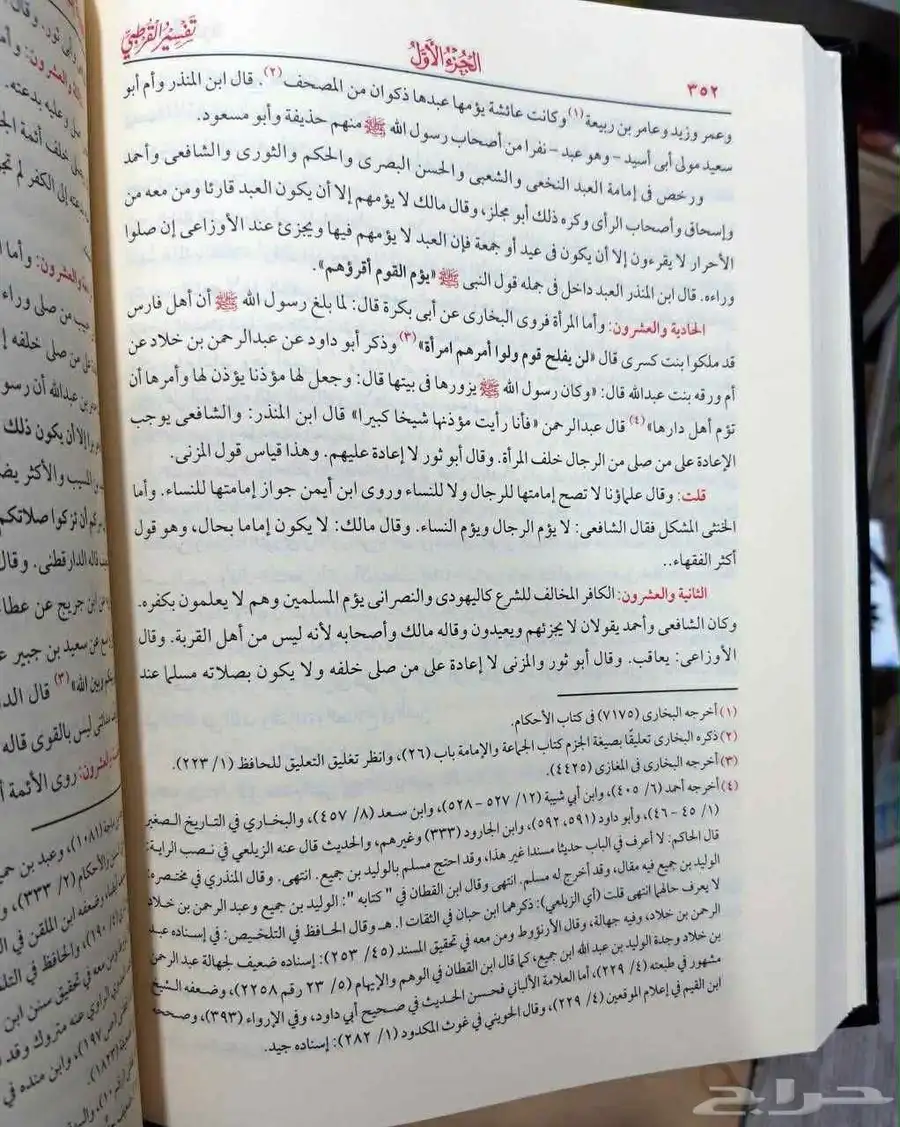 ٣٥٢
الجزء الأول
تفسير القرطبي
وعمر وزيد وعامر بن ربيعة(١) وكانت عائشة يؤمها عبدها ذكوان من المصحف(٢). قال ابن المنذر وأم أبو
سعيد مولى أبى أسيد – وهو عبد – نفرا من أصحاب رسول الله ﷺ منهم حذيفة وأبو مسعود.
ورخص فى إمامة العبد النخعى والشعبي والحسن البصرى والحكم والثورى والشافعى وأحمد
وإسحاق وأصحاب الرأى وكره ذلك أبو مجلز، وقال مالك لا يؤمهم إلا أن يكون العبد قارئا ومن معه من
الأحرار لا يقرءون إلا أن يكون فى عيد أو جمعة فإن العبد لا يؤمهم فيها ويجزئ عند الأوزاعى إن صلوا
وراءه. قال ابن المنذر العبد داخل فى جمله قول النبى ﷺ «يؤم القوم أقرؤهم».
الحادية والعشرون: وأما المرأة فروى البخارى عن أبى بكرة قال: لما بلغ رسول الله ﷺ أن أهل فارس
قد ملكوا بنت كسرى قال «لن يفلح قوم ولوا أمرهم امرأة»(٣) وذكر أبو داود عن عبدالرحمن بن خلاد عن
أم ورقه بنت عبدالله قال: «وكان رسول الله ﷺ يزورها فى بيتها قال: وجعل لها مؤذنا يؤذن لها وأمرها أن
تؤم أهل دارها»(٤) قال عبدالرحمن «فأنا رأيت مؤذنها شيخا كبيرا» قال ابن المنذر: والشافعى يوجب
الإعادة على من صلى من الرجال خلف المرأة. وقال أبو ثور لا إعادة عليهم. وهذا قياس قول المزنى.
قلت: وقال علماؤنا لا تصح إمامتها للرجال ولا للنساء وروى ابن أيمن جواز إمامتها للنساء. وأما
الخنثى المشكل فقال الشافعى: لا يؤم الرجال ويؤم النساء. وقال مالك: لا يكون إماما بحال، وهو قول
أكثر الفقهاء..
الثانية والعشرون: الكافر المخالف للشرع كاليهودى والنصرانى يؤم المسلمين وهم لا يعلمون بكفره.
وكان الشافعى وأحمد يقولان لا يجزئهم ويعيدون وقاله مالك وأصحابه لأنه ليس من أهل القربة. وقال
الأوزاعى: يعاقب. وقال أبو ثور والمزنى لا إعادة على من صلى خلفه ولا يكون بصلاته مسلما عند
(١) أخرجه البخارى (٧١٧٥) فى كتاب الأحكام.
(٢) ذكره البخارى تعليقًا بصيغة الجزم كتاب الجماعة والإمامة باب (٢٦)، وانظر تغليق التعليق للحافظ (١/ ٢٢٣).
(٣) أخرجه البخارى فى المغازى (٤٤٢٥).
(٤) أخرجه أحمد (٦/ ٤٠٥)، وابن أبي شيبة (١٢/ ٥٢٧ – ٥٢٨)، وابن سعد (٨/ ٤٥٧)، والبخاري في التاريخ الصغير
(١/ ٤٥ – ٤٦)، وأبو داود (٥٩١، ٥٩٢)، وابن الجارود (٣٣٣) وغيرهم، والحديث قال عنه الزيلعي في نصب الراية:
قال الحاكم: لا أعرف في الباب حديثا مسندا غير هذا، وقد احتج مسلم بالوليد بن جميع. انتهى. وقال المنذري في مختصره:
الوليد بن جميع فيه مقال، وقد أخرج له مسلم. انتهى وقال ابن القطان في "كتابه": الوليد بن جميع وعبد الرحمن بن خلاد
لا يعرف حالهما انتهى قلت (أي الزيلعي): ذكرهما ابن حبان في الثقات ا. هـ وقال الحافظ في التلخيص: في إسناده عبد
الرحمن بن خلاد، وفيه جهالة، وقال الأرنؤوط ومن معه في تحقيق المسند (٤٥/ ٢٥٣): إسناده ضعيف لجهالة عبد الرحمن
بن خلاد وجدة الوليد بن عبد الله ابن جميع، كما قال ابن القطان في الوهم والإيهام (٥/ ٢٣ رقم ٢٢٥٨)، وضعفه الشيخ
مشهور في طبعته (٤/ ٢٢٩)، أما العلامة الألباني فحسن الحديث في صحيح أبي داود، وفي الإرواء (٣٩٣)، وصححه
ابن القيم في إعلام الموقعين (٤/ ٢٢٩)، وقال الحويني في غوث المكدود (١/ ٢٨٢): إسناده جيد.
حراج